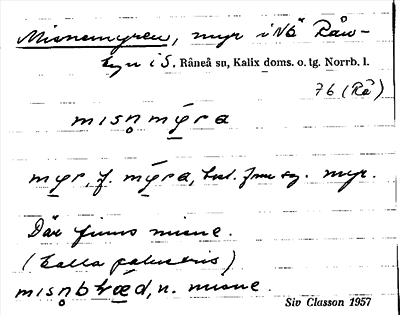 Misnemyren, myr i NÖ Råne-
byn i S. Råneå sn, Kalix doms. o. tg. Norrb. l.
76 (Rå)
misn̥mýra
myr, f. mýra, best. form sg. myr.
Där finns misne.
(Calla palustris)
misn̥bræd, n. misne.
Siv Classon 1957